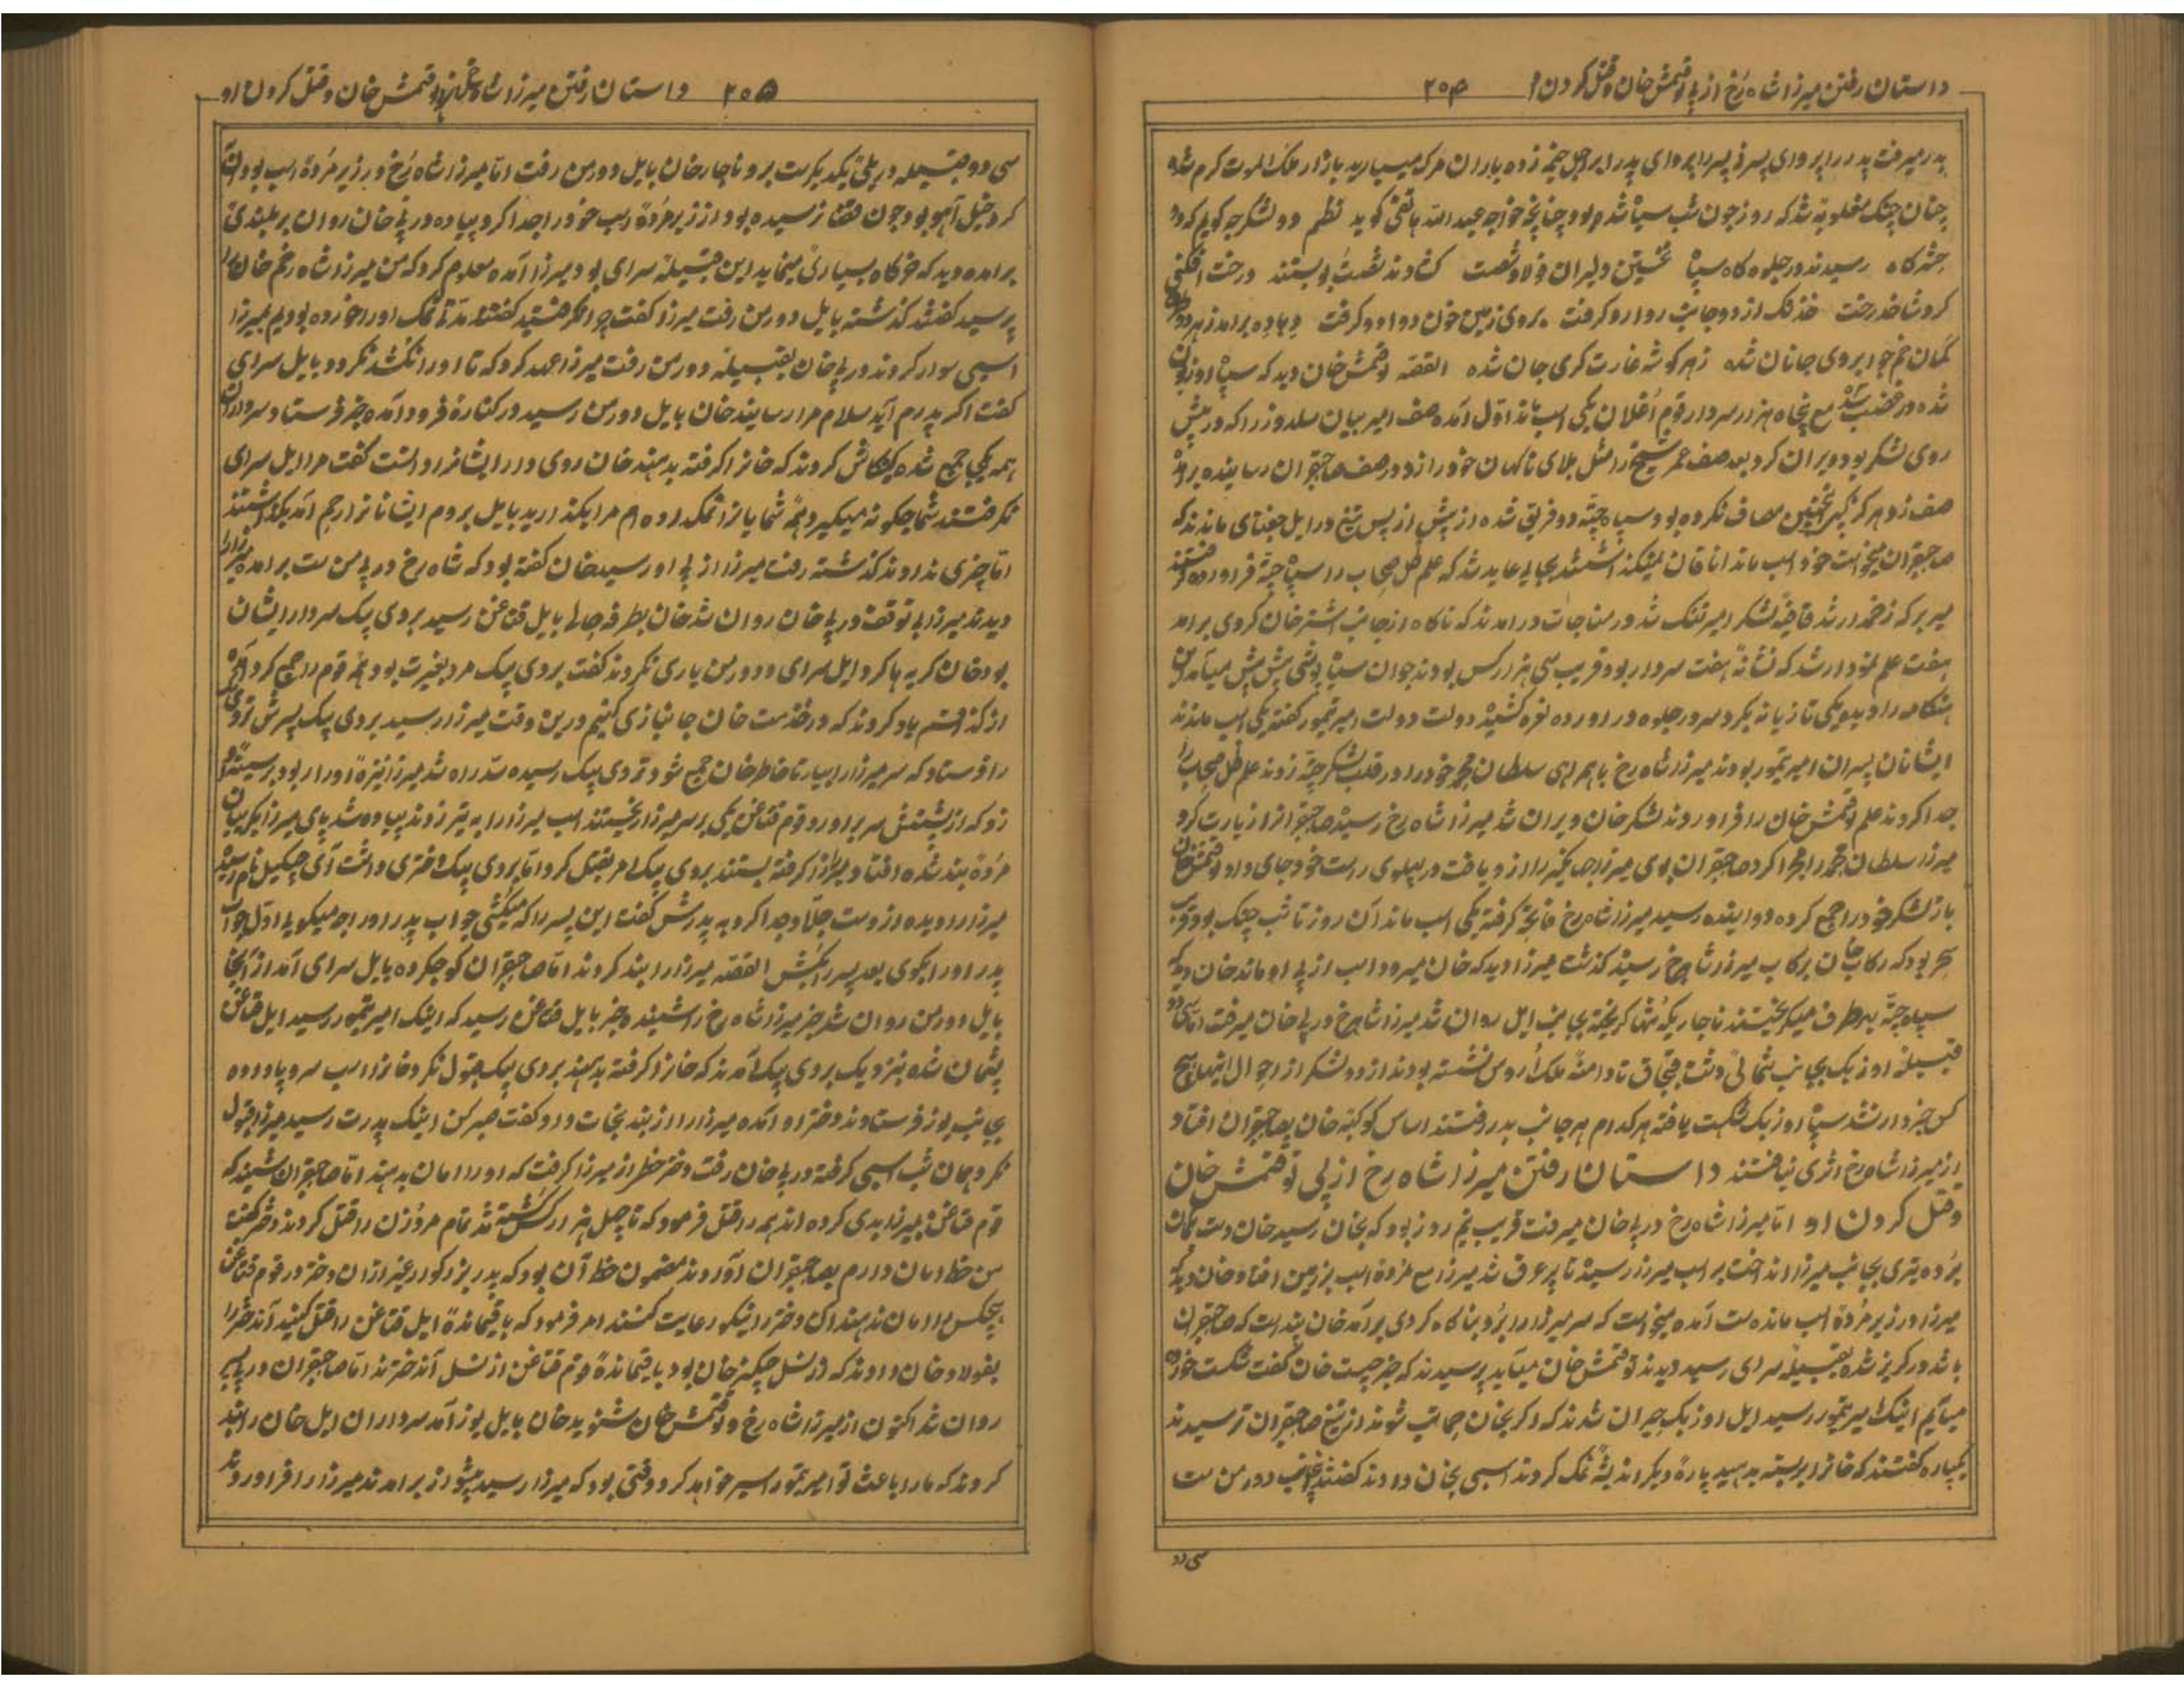 داستان رفتن میرزا شاه رخ از پی توقتمش خان و قتل کردن او ۲۰۴
پدر میرفت پدر را پروای پسر نه پسر را پروای پدر ابر اجل خیمه زده باران مرگ میبارید بازار ملک الموت گرم شده
چنان جنگ مغلوبه شد که روز چون شب سیاه شده بود چنانچه خواجه عبد الله هاتفی گوید نظم دو لشکر چه گویم که دو
رسیدند در جلوه گاه سپاه نخستین دلیران فولاد شست گشادند شست و ببستند درخت افکنی
کرد شاخ درخت خدنک از دو جانب روا رو گرفت بروی زمین خون دوا دو گرفت
کمان خم چو ابروی جانان شده زهر گوشه غارت گری جان شده القصه توقتمش خان دید که سپاه اوزبک
شده در غضب شد مع پنجاه هزار سردار قوم اغلان یکی اسب ماند اول آمده صف امیر بیان سلدوز را که در پیش
روی لشکر بود ویران کرد بعد صف عمر شیخ را مثل بلای ناگهان خود را زد در صف صاحبقران رسانیده برد
صف زد هرگز چنین مصاف نکرده بود سپاه جته دو فریق شده از پیش از پس تیغ در ایل چغتای ماندند که
صاحبقران میخواست خود اسب ماند اتاقان نمیگذاشتند بجایی عاید شد که علم ظل صحاب را سپاه جته فراورده گفتند
میر برکه زخمدار شد قاضی لشکر امیر تفنک شد در مناجات درامدند که ناگاه از جانب اشترخان گردی برامد
هفت علم نمودار شد که نشانه هفت سردار بود قریب سی هزار کس بودند جوان سیاه پوشی پیش پیش میآمد این
هنگامه را دید و یکی تازیانه بکرد سر در جلوه دراورده نعره کشید دولت دولت امیر تیمور گفته یکی اسب ماندند
ایشانان پسران امیر تیمور بودند میرزا شاه رخ باهمراهی سلطان محمد خود را در قلب لشکر جته زدند علم ظل صحاب را
جدا کردند علم توقتمش خان را فراوردند لشکر خان ویران شد میرزا شاه رخ رسید صاحبقران را زیارت کرد
باز لشکر خود را جمع کرده دوانیده رسید میرزا شاه رخ فاتحه گرفته یکی اسب ماند آن روز تا شب جنگ بود قریب
سحر بود که رکاب خان برکاب میرزا شاه رخ رسید گذشت میرزا دید که خان میرود اسب از پی او ماند خان دید که
سپاه جته بهر طرف میگریختند ناچار یکه تنها گریخته بجانب ایل روان شد میرزا شاه رخ در پی خان میرفت اما سی دو
قبیله اوزبک بجانب شمالی دشت قبچاق تا دامنه ملک اروس نشسته بودند از دو لشکر از احوال اینها هیچ
کس خبردار نشد سپاه اوزبک شکست یافته هر کدام هر جانب بدر رفتند اساس کوکبه خان بصاحبقران افتاد
از میرزا شاه رخ اثری نیافتند داستان رفتن میرزا شاه رخ از پی توقتمش خان
و قتل کردن او اما میرزا شاه رخ در پی خان میرفت قریب نیم روز بود که بخان رسید خان دست بکمان
برده تیری بجانب میرزا انداخت بر اسب میرزا رسید تا پر غرق شد میرزا مع مرده اسب بزمین افتاد خان دید که
میرزا در زیر مرده اسب مانده است آمده میخواست که سر میرزا را برد بناگاه گردی برآمد خان پنداشت که صاحبقران
باشد در گریز شده بقبیله سرای رسید دیدند توقتمش خان میآید پرسیدند که خبر چیست خان گفت شکست خورده
میآیم اینک امیر تیمور رسید ایل اوزبک حیران شدند که اگر بخان جانب شوند از تیغ صاحبقران ترسیدند
یکپاره گفتند که خانرا بربسته بدهید پارهٔ دیگر اندیشه نمک کردند اسپی بخان دادند گفتند جانب دورمن ست
سی دو
۲۰۵ داستان رفتن میرزا شاه رخ از پی توقتمش خان و قتل کردن او
سی دو قبیله در پلی یکدیگرست برو ناچار خان بایل دورمن رفت اما میرزا شاه رخ در زیر مردهٔ اسب بود
کرد خیل آهو بود چون قضا نرسیده بود از زیر مردهٔ اسب خود را جدا کرد پیاده در پی خان روان بر بلندی
برامده دید که خرگاه بسیاری مینماید این قبیله سرای بود میرزا آمده معلوم کرد که من میرزا شاه رخم خان را
پرسید گفتند گذشته بایل دورمن رفت میرزا گفت چرا نگرفتید گفتند مدتها نمک او را خورده بودیم میرزا را
اسپی سوار کردند در پی خان بقبیله دورمن رفت میرزا عهد کرد که تا او را نکشد نگردد بایل سرای
گفت اگر پدرم آید سلام مرا رسانید خان بایل دورمن رسید در کنارهٔ فرود آمده خبر فرستاد سرداران
همه یکی جمع شده کنکاش کردند که خانرا گرفته بدهند خان روی در ایشان داشت گفت مرا ایل سرای
نگرفتند شما چگونه میگیرید همهٔ شمایانرا نمک داده ام مرا بگذارید بایل بروم ایشانانرا رحم آمد بگذاشتند
اما چیزی ندادند گذشته رفت میرزا از پی او رسید خان گفته بود که شاه رخ در پی من ست برامده میرزا را
دیدند میرزا بی توقف در پی خان روان شد خان بطرفه حالی بایل قتاغن رسید بردی بیک سردار ایشان
بود خان گریه ها کرد ایل سرای و دورمن یاری نکردند گفت بردی بیک مرد بغیرت بود همه قوم را جمع کرد
قسم یاد کردند که در خدمت خان جانبازی کنیم درین وقت میرزا رسید بردی بیک پسرش تردی بیک
را فرستاد که سر میرزا را بیار تا خاطر خان جمع شود تردی بیک رسیده سد راه شد میرزا نیزهٔ او را ربود بر سینه او
زد که از پشتش سر براورد قوم قتاغن یکی بر سر میرزا ریختند اسب میرزا را به تیر زدند پیاده شد پای میرزا
مرده بند شده افتاد میرزا را گرفته بستند بردی بیک امر بقتل کرد اما بردی بیک دختری داشت آی چیکیل نام رسید
میرزا را دیده از دست جلاد جدا کرد به پدرش گفت این پسر را که میکشی جواب پدر او را چه میگویی اول جواب
پدر او را بگوی بعد پسر را بکش القصه میرزا را بند کردند اما صاحبقران کوچ کرده بایل سرای آمد از آنجا
بایل دورمن روان شد خبر میرزا شاه رخ را شنید خبر بایل قتاغن رسید که اینک امیر تیمور رسید ایل قتاغن
پشیمان شده بنزدیک بردی بیک آمدند که خانرا گرفته بدهند بردی بیک قبول نکرد خانرا اسب سر و پا داده
بجانب یوز فرستادند دختر او آمده میرزا را از بند نجات داد گفت صبر کن اینک پدرت رسید میرزا قبول
نکرد همان شب اسپی گرفته در پی خان رفت دختر خط از میرزا گرفت که او را امان بدهند اما صاحبقران شنید که
قوم قتاغن بمیرزا بدی کرده اند همه را قتل فرمود که تا چهل هزار کس کشته شد تمام مرد و زن را قتل کردند دختر گفت
من خط امان دارم بصاحبقران آوردند مضمون خط آن بود که پدر بزرگوار غیر ازان دختر در قوم قتاغن
هیچکس را امان ندهند آن دختر را نیکو رعایت کنند امر فرمود که باقیماندهٔ ایل قتاغن را قتل نکنید آن دختر را
بفولاد خان دادند که از نسل چنگیز خان بود باقیماندهٔ قوم قتاغن از نسل آن دخترند اما صاحبقران در پی پسر
روان شد اکنون از میرزا شاه رخ و توقتمش خان شنوید خان بایل یوز آمد سرداران ایل خان را
کردند که ما را باعث تو امیر تیمور اسیر خواهد کرد وقتی بود که میرزا رسید پیشواز برامدند میرزا را فراوردند